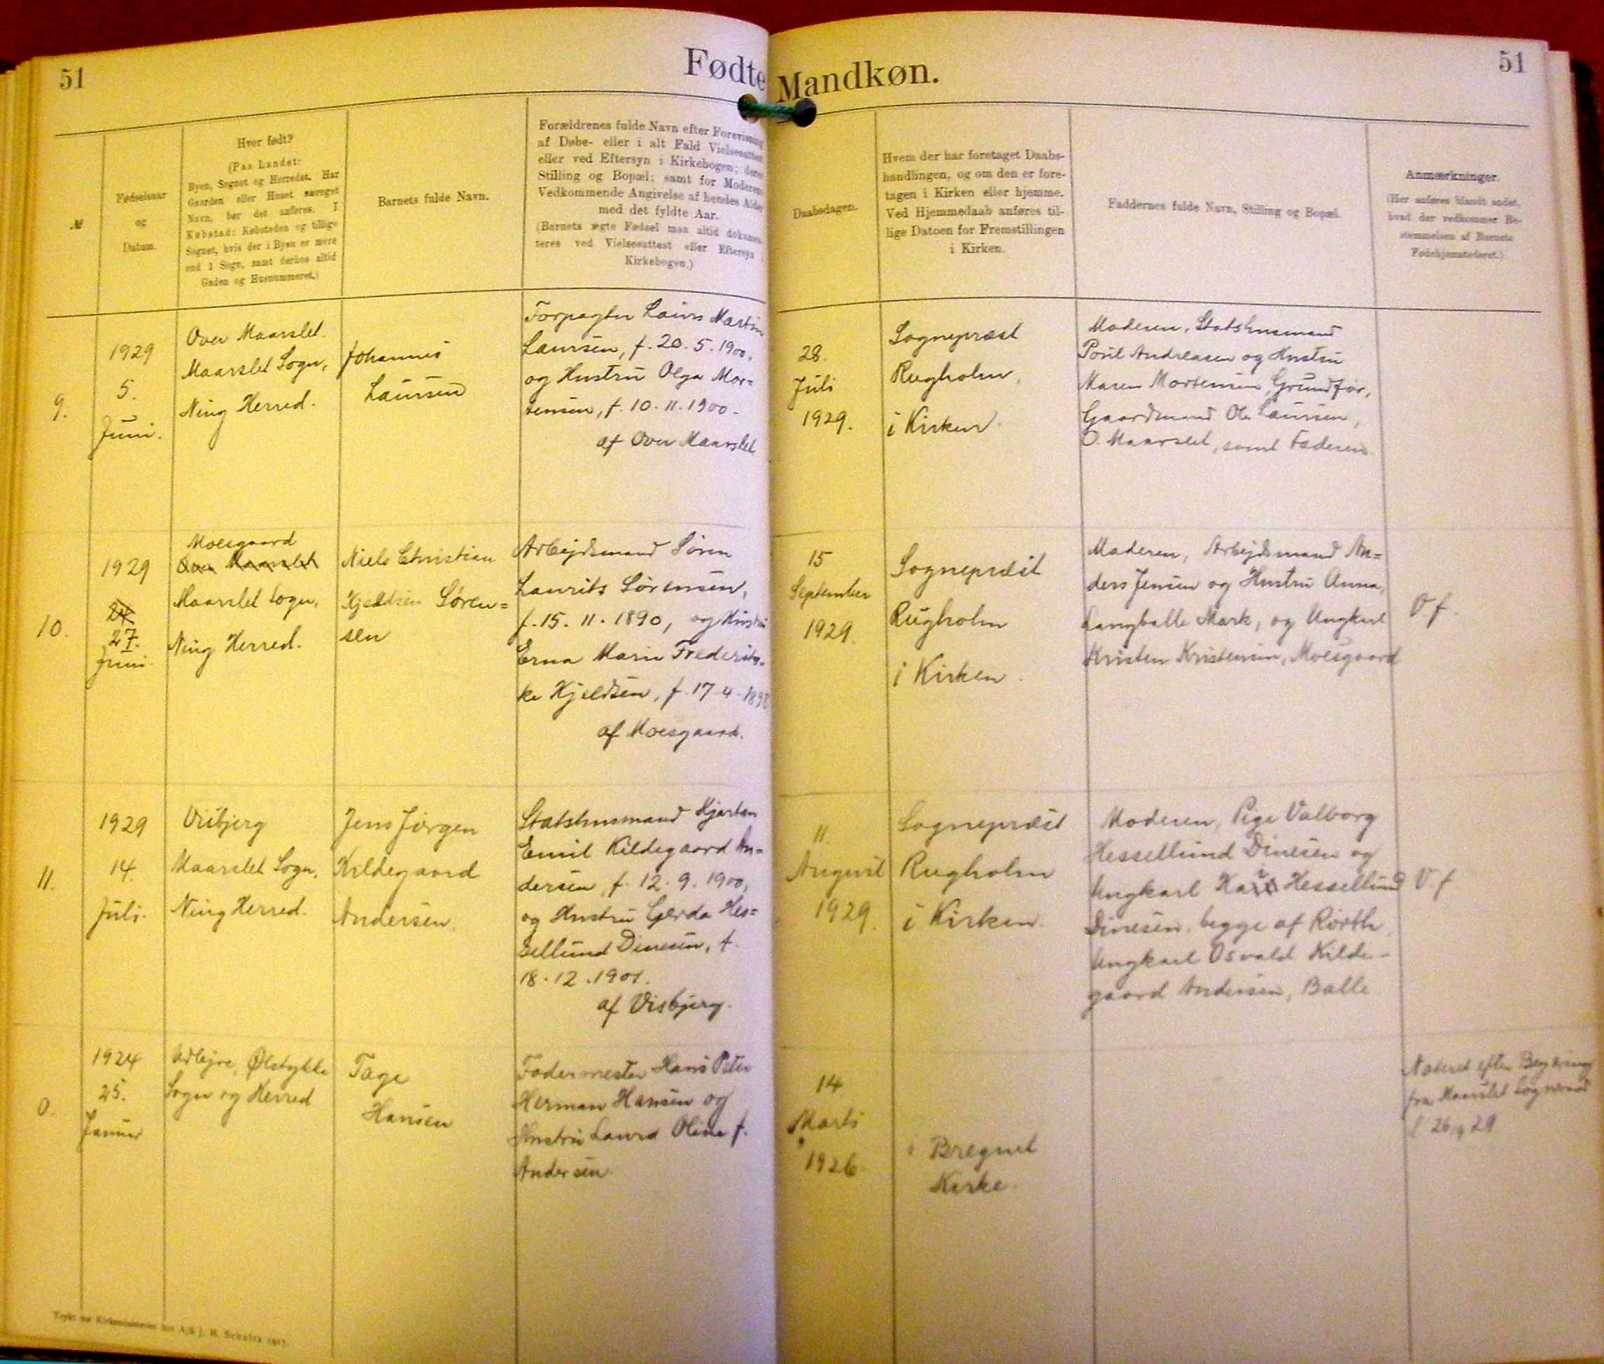 51
Fødte Mandkøn.
51
№
Fødselsaar
og
Datum.
Hvor født?
(Paa Landet:
Byen, Sognet og Herredet. Har
Gaarden eller Huset særeget
Navn, bør det anføres. I
Købstad: Købstaden og tillige
Sognet, hvis der i Byen er mere
end 1 Sogn, samt derhos altid
Gaden og Husnummeret.)
Barnets fulde Navn.
Forældrenes fulde Navn efter Forevisning
af Døbe- eller i alt Fald Vielsesattest
eller ved Eftersyn i Kirkebogen; deres
Stilling og Bopæl; samt for Moderens
Vedkommende Angivelse af hendes Alder
med det fyldte Aar.
(Barnets ægte Fødsel maa altid dokumen-
teres ved Vielsesattest eller Eftersyn i
Kirkebogen.)
Daabsdagen.
Hvem der har foretaget Daabs-
handlingen, og om den er fore-
tagen i Kirken eller hjemme.
Ved Hjemmedaab anføres til-
lige Datoen for Fremstillingen
i Kirken.
Faddernes fulde Navn, Stilling og Bopæl.
Anmærkninger.
(Her anføres blandt andet,
hvad der vedkommer Be-
stemmelsen af Barnets
Fødehjemstedsret.)
9.
1929
5.
Juni.
Over Maarslet.
Maarslet Sogn,
Ning Herred.
Johannes
Laursen
Forpagter Laurs Martin
Laursen, f. 20.5.1900.
og Hustru Olga Mor=
tensen, f. 10.11.1900.
af Over Maarslet
28.
Juli
1929.
Sognepræst
Rugholm,
i Kirken.
Moderen, Statshusmand
Poul Andreasen og Hustru
Maren Mortensen, Grundfør,
Gaardmand Ole Laursen,
O. Maarslet, samt Faderen.
10.
1929
24
27.
Juni.
Moesgaard
Over Maarslet
Maarslet Sogn,
Ning Herred.
Niels Christian
Kjeldsen Søren=
sen
Arbejdsmand Søren
Laurits Sørensen,
f. 15. 11. 1890, og Hustru
Erna Marie Frederik-
ke Kjeldsen, f. 17.4.1898
af Moesgaard.
15
September
1929.
Sognepræst
Rugholm
i Kirken.
Moderen, Arbejdsmand An=
ders Jensen og Hustru Anna,
Langballe Mark, og Ungkarl
Kristen Kristensen, Moesgaard
V f.
11.
1929
14.
Juli.
Visbjerg
Maarslet Sogn,
Ning Herred.
Jens Jørgen
Kildegaard
Andersen.
Statshusmand Hjartan
Emil Kildegaard An=
dersen, f. 12.9.1900,
og Hustru Gerda Hes=
sellund Dinesen, f.
18.12.1901.
af Visbjerg.
11.
August
1929.
Sognepræst
Rugholm
i Kirken.
Moderen, Pige Valborg
Hessellund Dinesen og
Ungkarl Hessellund
Dinesen, begge af Rørth,
Ungkarl Osvald Kilde-
gaard Andersen, Balle
V. f.
0.
1924
25.
Januar
Udlejre, Ølstykke
Sogn og Herred
Tage
Hansen
Fodermester Hans Peter
Herman Hansen og
Hustru Laura Oline f.
Andersen.
14
Marts
1926.
i Bregnet
Kirke.
Noteret efter Begæring
fra Maarslet Sogneraad
29
Trykt for Kirkeministeriet hos A/S J. H. Schultz 1917.